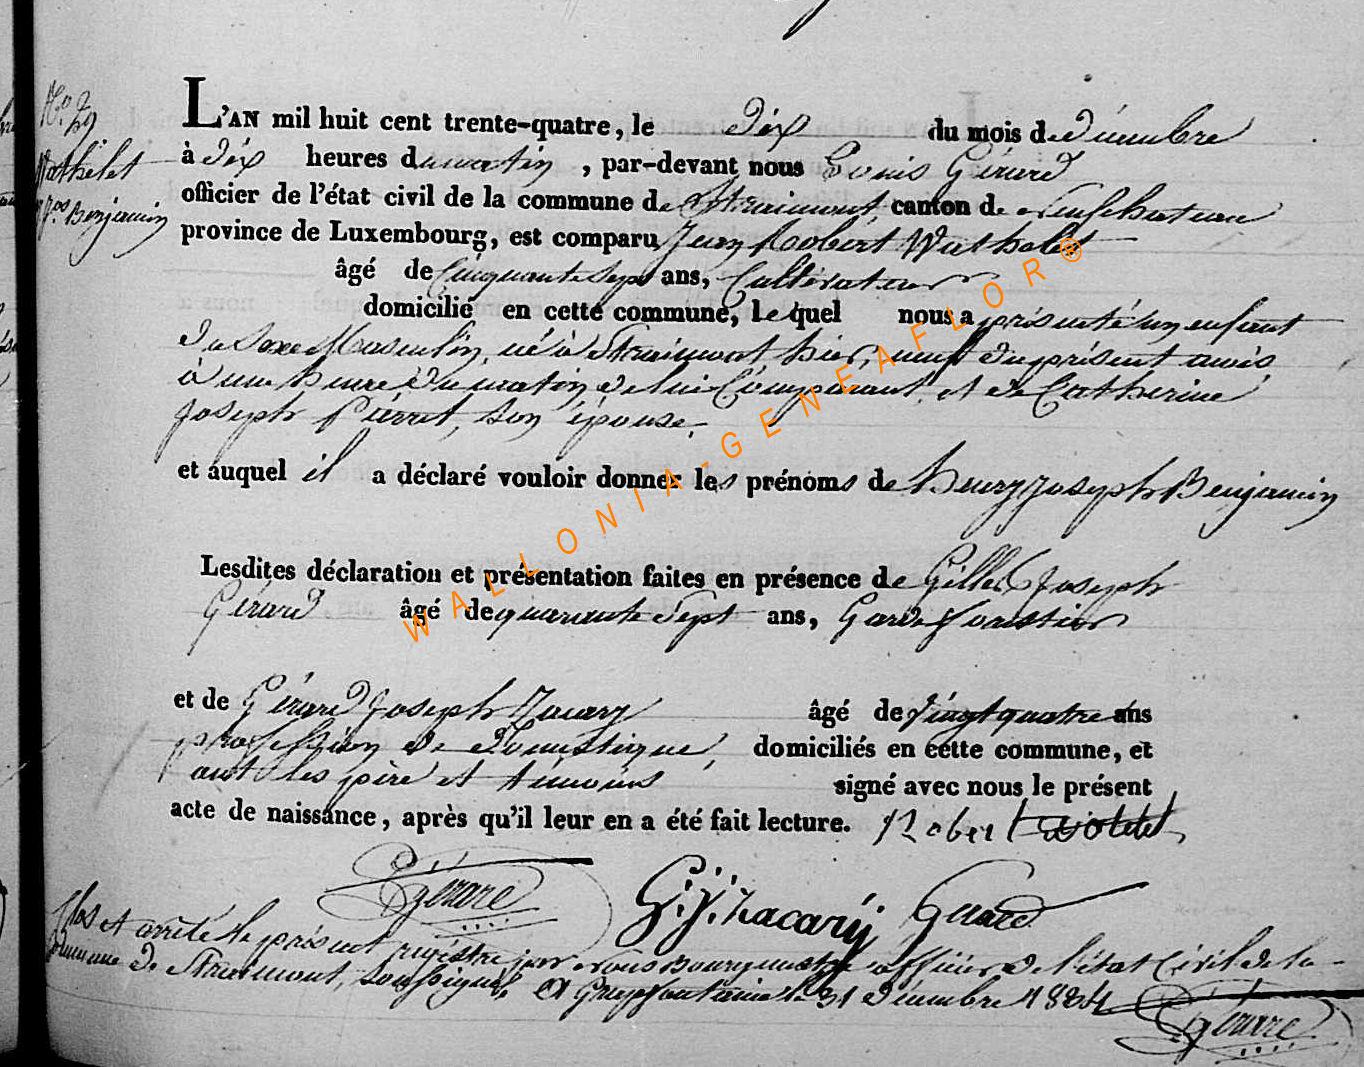 L'AN mil huit cent trente-quatre, le dix du mois de décembre
à dix heures du matin, par-devant nous Louis Gérard
officier de l'état civil de la commune de Straimont, canton de Neufchateau
province de Luxembourg, est comparu Jean Robert Wathelet
âgé de Cinquante Sept ans, Cultivateur
domicilié en cette commune, lequel nous a présenté un enfant
du Sexe Masculin, né à Straimont hier, neuf du présent mois,
à une heure du matin de lui Comparant, et de Catherine
Joseph Pierret, son épouse.
et auquel il a déclaré vouloir donner les prénoms de henry Joseph Benjamin
Lesdites déclaration et présentation faites en présence de Gilles Joseph
Gérard âgé de quarante Sept ans, Garde forestier
et de Gérard Joseph Zacary âgé de vingt quatre ans
profession de domestique, domiciliés en cette commune, et
ont les père et témoins signé avec nous le présent
acte de naissance, après qu'il leur en a été fait lecture. Robert
Gérard G. J. Zacary Gerard
Clos et arrêté le présent registre par nous Bourgmestre officier de l'état Civil de la
Commune de Straimont, soussigné, A Grapfontaine le 31 décembre 1834
Gérard
N.º 29
Wathelet
h.y J.ph Benjamin
WALLONIA-GENEAFLOR®